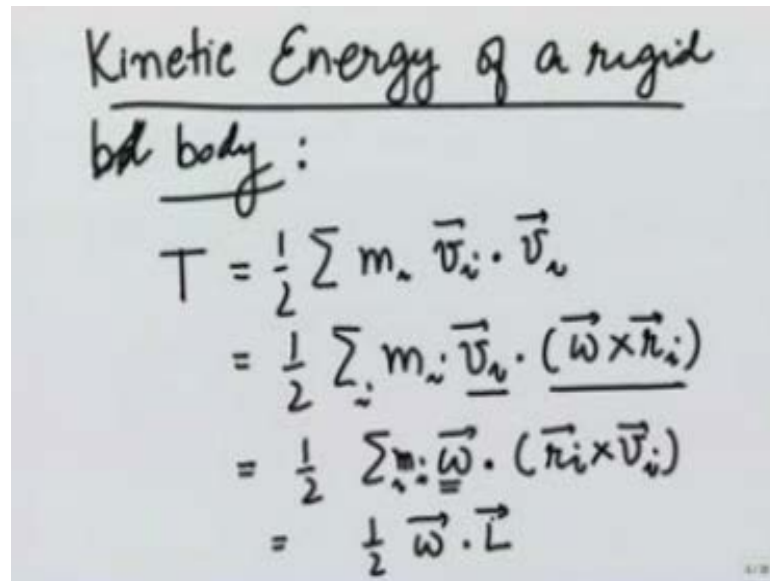 Kinetic Energy of a rigid
bd body :
T = 1/2 Σ m_i v⃗_i · v⃗_i
= 1/2 Σ_i m_i v⃗_i · (ω⃗ × r⃗_i)
= 1/2 Σ_i m_i ω⃗ · (r⃗_i × v⃗_i)
= 1/2 ω⃗ · L⃗